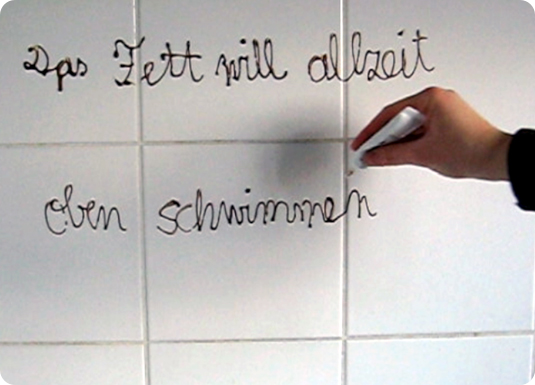 Das Fett will allzeit
oben schwimmen